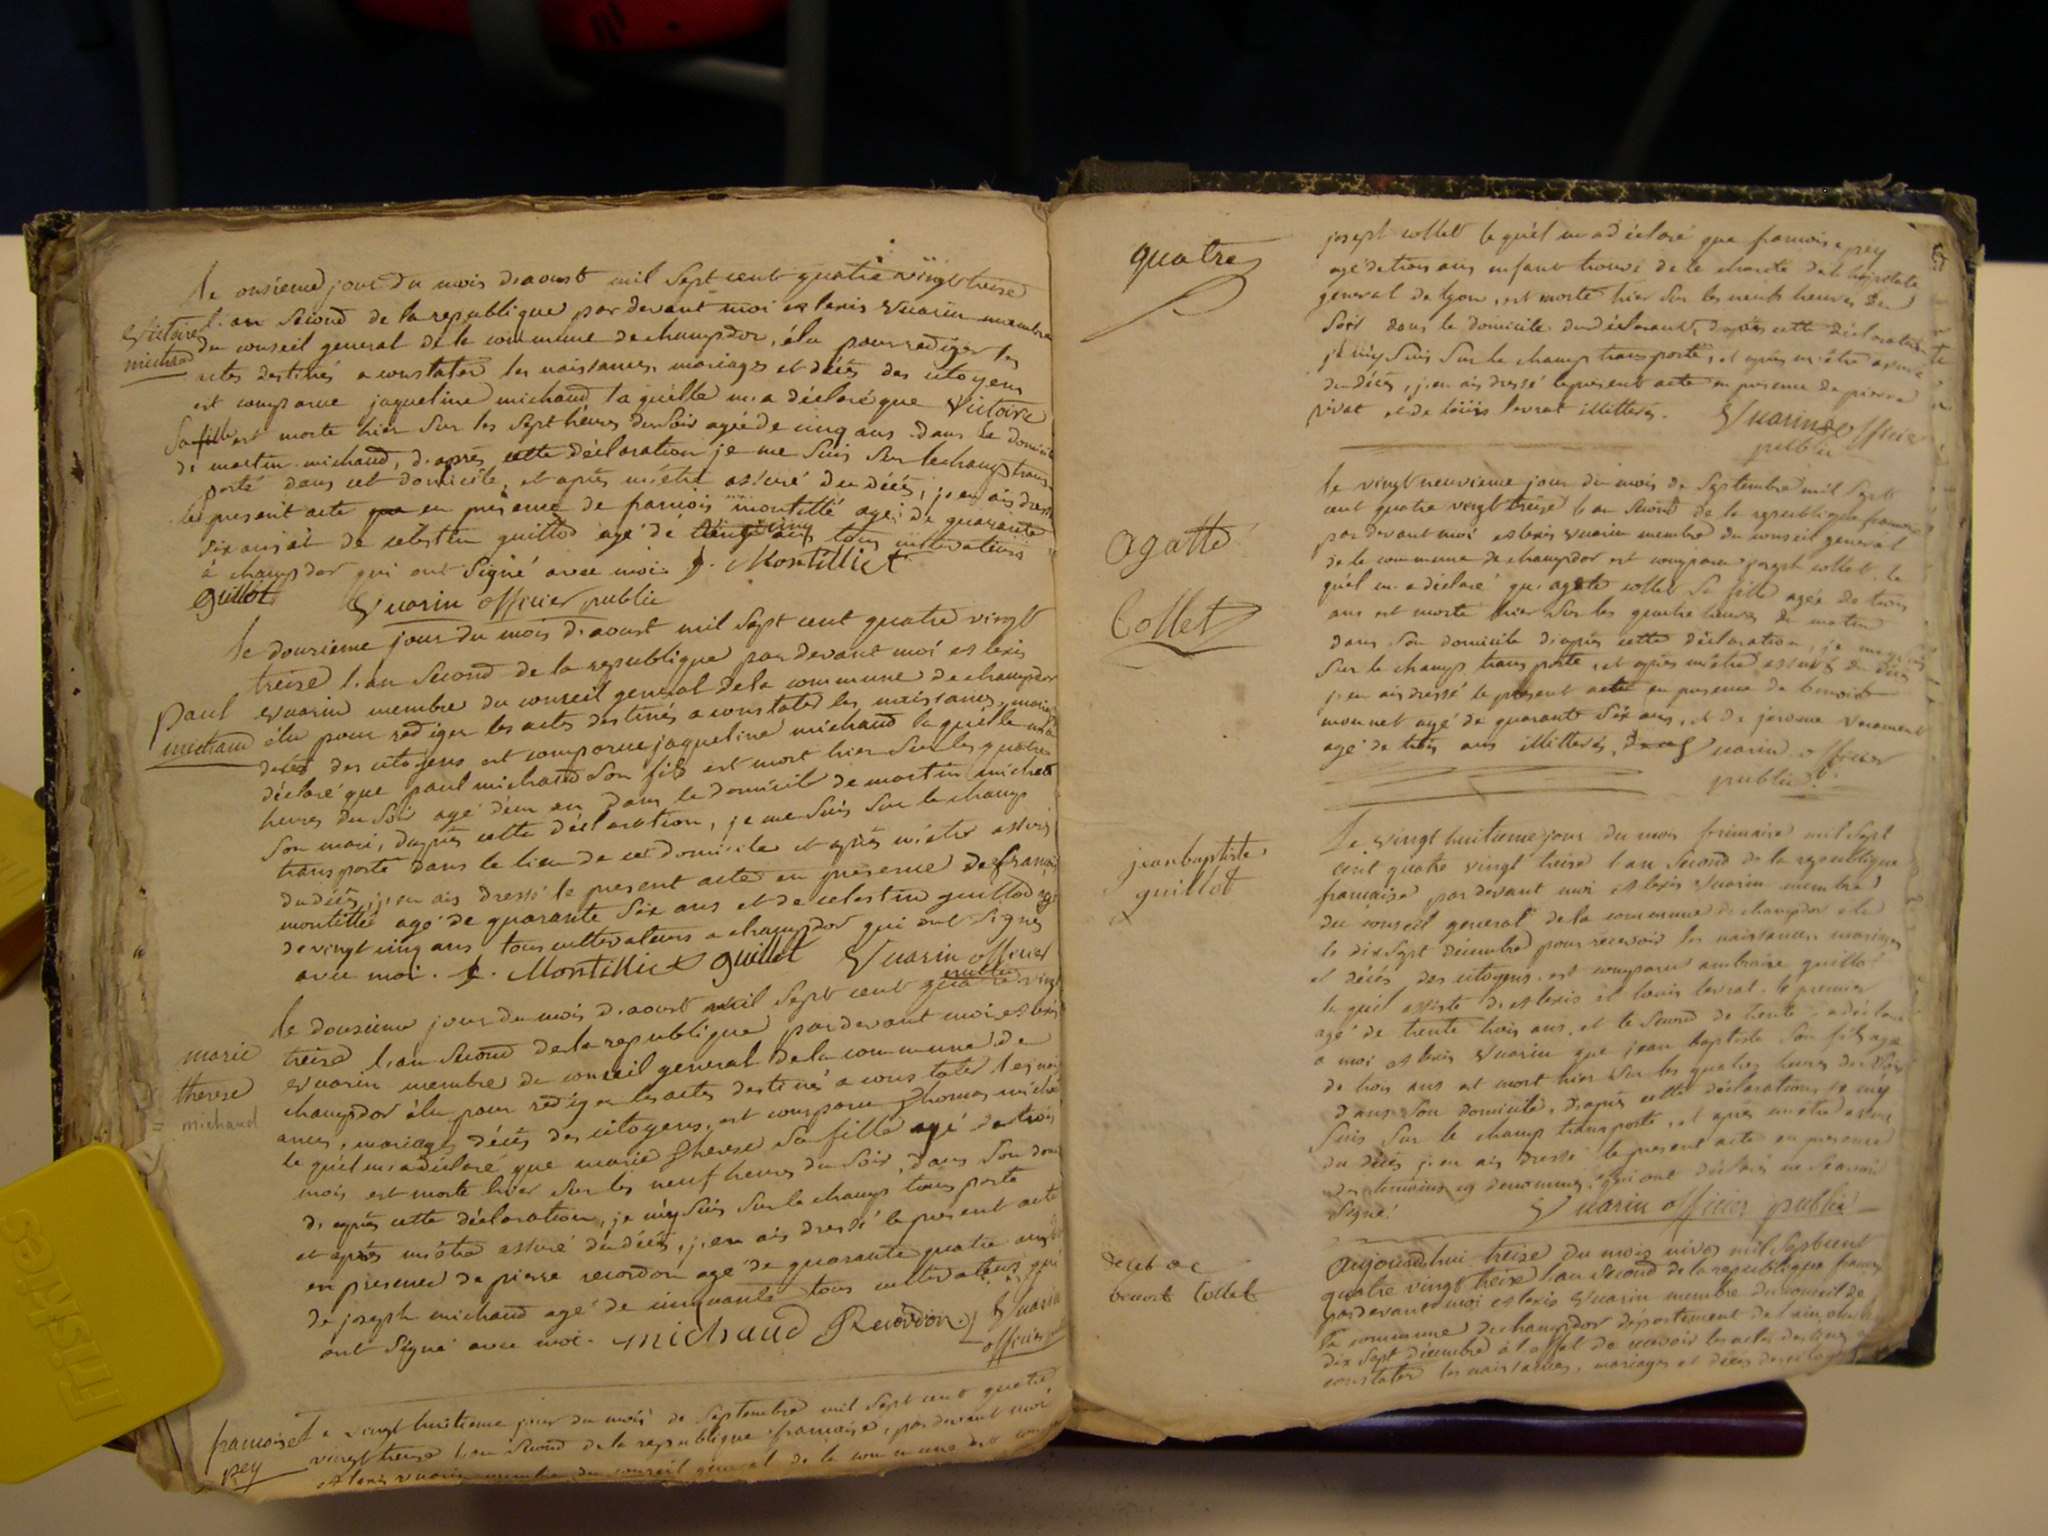 le onsieme jour du mois d'aoust mil sept cent quatre vingt treise
l'an second de la republique par devant moi alexis Vuarin membre
Victoire
michaud
du conseil general de la commune de champdor, élu pour rediger les
actes destinés a constater les naissances, mariages et décés des citoyens
est comparue jaqueline michaud laquelle m'a déclaré que Victoire
sa fille est morte hier sur les sept heures du soir agée de cinq ans dans le domicile
de martin michaud, d'aprés cette déclaration je me suis sur le champ trans
porté dans cet domicile, et aprés m'étre assuré du décés, j'en ais dressé
le present acte en présence de francois montillé agé de quarante
six ans et de celestin guillod agé de cinq ans tous cultivateurs
a champdor qui ont signé avec moi. f. Montillict
guillot Vuarin officier public
le dousieme jour du mois d'aoust mil sept cent quatre vingt
treise l'an second de la republique par devant moi alexis
Paul
michaud
Vuarin membre du conseil general de la commune de champdor
élu pour rediger les actes destinés a constater les naissances, mariages
décés des citoyens est comparue jaqueline michaud laquelle m'a
déclaré que paul michaud son fils est mort hier sur les quatre
heures du soir agé d'un an dans le domicile de martin michaud
son mari, d'aprés cette déclaration, je me suis sur le champ
transporté dans le lieu de ce domicile et aprés m'étre assuré
du décés, j'en ais dressé le present acte en présence de francois
montillié agé de quarante six ans et de celestin guillod agé
de vingt cinq ans tous cultivateurs a champdor qui ont signé
avec moi. f. Montillict guillot Vuarin officier
public
le dousieme jour du mois d'aoust mil sept cent quatre vingt
treise l'an second de la republique par devant moi alexis
marie
therese
michaud
Vuarin membre du conseil general de la commune de
champdor élu pour rediger les actes destiné a constater les nais
ances, mariages décés des citoyens, est comparu thomas michaud
le quel m'a déclaré que marie therese sa fille agé de trois
mois est morte hier sur les neuf heures du soir, dans son dom
d'aprés cette déclaration, je m'y suis sur le champ transporté
et aprés m'étre assuré du décés, j'en ais dressé le present acte
en presence de pierre recordon agé de quarante quatre ans et
de joseph michaud agé de cinquante tous cultivateurs qui
ont signé avec moi. michaud Recordon Vuarin
officier public
francoise
pey
le vingt huitieme jour du mois de septembre mil sept cent quatre
vingt treise l'an second de la republique francaise, par devant moi
alexis vuarin membre du conseil general de la commune de
quatre
joseph collet le quel m'a déclaré que francoise pey
agé de trois ans enfant trouvé de la charité de l'hopitale
general de lyon, est morte hier sur les neufs heures du
soir dans le domicile du déclarant, d'aprés cette déclaration
je m'y suis sur le champ transporté, et aprés m'étre assuré
du décés, j'en ais dressé le present acte en presence de pierre
pivat et de louis levrat illitterés. Vuarin officier
public
le vingt neuvieme jour du mois de septembre mil sept
cent quatre vingt treise l'an second de la republique francaise
par devant moi alexis vuarin membre du conseil general
de la commune de champdor est comparu joseph collet le
agatte
Collet
quel m'a déclaré que agate collet sa fille agée de trois
ans est morte hier sur les quatre heures du matin
dans son domicile d'aprés cette déclaration, je m'y suis
sur le champ transporté, et aprés m'étre assuré du décés
j'en ais dressé le present acte en presence de benoit
mounet agé de quarante six ans, et de jerome
agé de ans illitterés, Vuarin officier
public
le vingt huitieme jour du mois frimaire mil sept
cent quatre vingt treise l'an second de la republique
jean baptiste
guillot
francaise par devant moi alexis Vuarin membre
du conseil general de la commune de champdor élu
le dix sept décembre pour recevoir les naissances mariages
et décés des citoyens, est comparu guillot
le quel assisté d'alexis et louis levrat. le premier
agé de trente trois ans, et le second de trente, a déclaré
a moi alexis Vuarin que jean baptiste son fils agé
de trois ans est mort hier sur les quatres heures du soir
dans son domicile, d'aprés cette déclaration, je m'y
suis sur le champ transporté, et aprés m'étre assuré
du décés j'en ais dressé le present acte en presence
des temoins denommés, qui ont déclaré ne scavoir
signé. Vuarin officier public
deces de
benoit Collet
aujourd'hui treise du mois nivos mil sept cent
quatre vingt treise l'an second de la republique francaise
par devant moi alexis Vuarin membre du conseil de
la commune de champdor département de l'ain élu le
dix sept décembre a l'effet de recevoir les actes destinés a
constater les naissances, mariages et décés des citoyens
Friskies